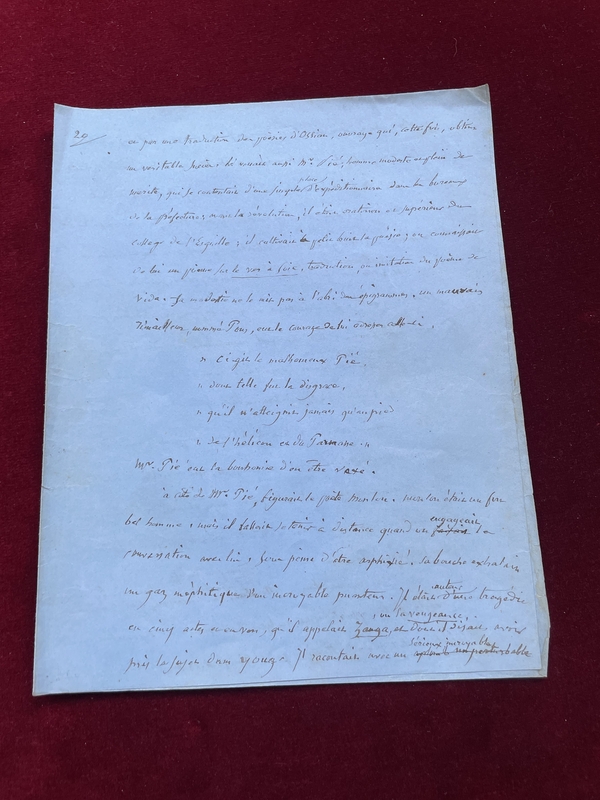 20
et par une traduction des poésies d'Ossian, ouvrage qui, cette fois, obtint
un véritable succès. Là venait aussi Mr. Pié, homme modeste et plein de
mérite, qui se contentait d'une simple place d'expéditionnaire dans les bureaux
de la préfecture; avant la révolution, il était oratorien et supérieur du
collège de l'Esquille; il cultivait la poésie; on connaissait
de lui un poème sur le ver à soie, traduction ou imitation du poème de
Vida. Sa modestie ne le mit pas à l'abri des épigrammes. un mauvais
rimailleur, nommé Pons, eut le courage de lui adresser celle-ci,
" ci-gît le malheureux Pié,
" dont telle fut la disgrace,
" qu'il n'atteignit jamais qu'au pied
" de l'hélicon et du Parnasse. "
Mr. Pié eut la bonhomie d'en être vexé.
à côté de Mr. Pié, figurait le poète Merlon. Merlon était un fort
bel homme, mais il fallait se tenir à distance quand on engageait la
conversation avec lui, sous peine d'être asphixié. Sa bouche exhalait
un gaz méphitique d'une incroyable puanteur. Il était auteur d'une tragédie
en cinq actes et en vers, qu'il appelait Zanga, ou la vengeance, et dont il disait avoir
pris le sujet dans Young. Il racontait avec un sérieux incroyable imperturbable